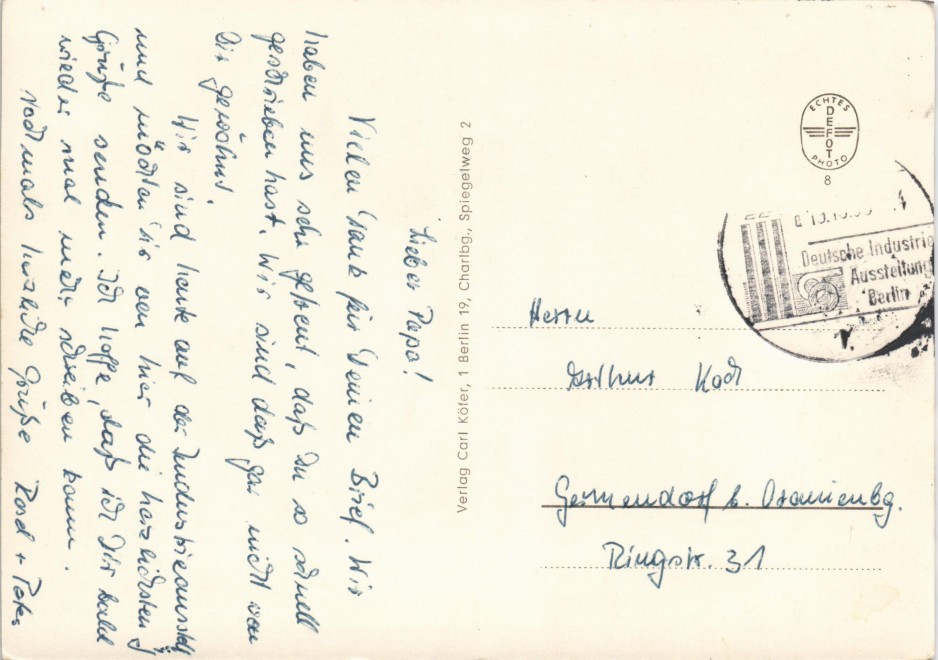 Lieber Papa!
Vielen Dank für Deinen Brief. Wir
haben uns sehr gefreut, daß Du so schnell
geschrieben hast. Wir sind daß gar nicht von
Dir gewöhnt.
Wir sind heute auf der Industrieausstellg
und möchten Dir von hier die herzlichsten
Grüße senden. Ich hoffe, daß ich Dir bald
wieder mal mehr schreiben kann.
Nochmals herzliche Grüße
Verlag Carl Köfer, 1 Berlin 19, Charlbg., Spiegelweg 2
ECHTES
DEFOT
PHOTO
8
Deutsche Industrie
Ausstellung
Berlin
Herrn
Arthur Koch
Germendorf b. Oranienbg.
Ringstr. 31